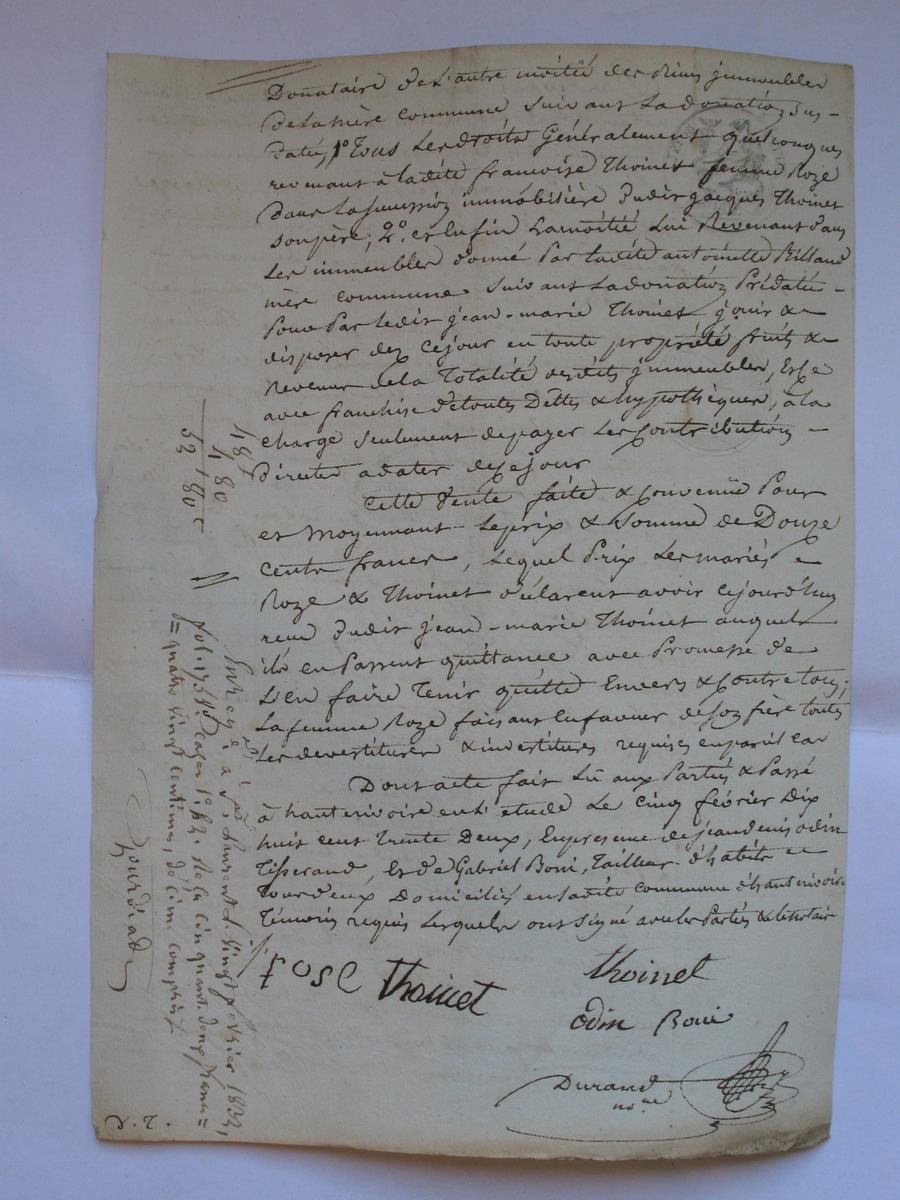 Donataire de l'autre moitié des biens immeubles
de la mère commune suivant la donation sus-
datée, 1º tous les droits Généralement quelconques
revenant à ladite francoise Thoinet femme Roze
dans la succession immobilière dudit jacques Thoinet
son père, 2º. et enfin la moitié lui Revenant dans
les immeubles donné par ladite antoinette
mère commune suivant la donation Prédatée -
Pour Par ledit jean-marie Thoinet jouir &
disposer dez ce jour en toute propriété fruits &
Revenus de la Totalité desdits immeubles, &
avec franchise de toutes Dettes & hypothèques, à la
charge seulement de payer les Contributions -
Directes a dater de ce jour
Cette Vente faite & Convenüe Pour
et Moyennant le prix & Somme de Douze
Cents francs, lequel Prix les mariés
Roze & Thoinet déclarent avoir cejourd'huy
recu dudit jean-marie Thoinet auquel
ils en Passent quittance avec Promesse de
l'en faire Tenir quitte Envers & Contre tous;
La femme Roze faisant en faveur de son frère toutes
les devestitures & investitures requises en pareil cas
Dont acte fait lû aux Parties & Passé
à hauterivoire en l'étude le cinq février Dix
huit cent trente Deux, En présence de jean denis odin
Tisserand, Et de Gabriel Boni, Tailleur d'habits
tous deux Domiciliés en ladite commune d'hauterivoire
Témoins requis lesquels ont signé avec les Parties & le notaire
rose Thoinet
Thoinet
odin Boni
Durand
nore
48f
4 80
52 80c
Enregistré à St Laurent le vingt février 1832,
fol. 175 Vº Cases 1re & 2. Reçu cinquante deux francs
quatre vingt centimes, décime compris.